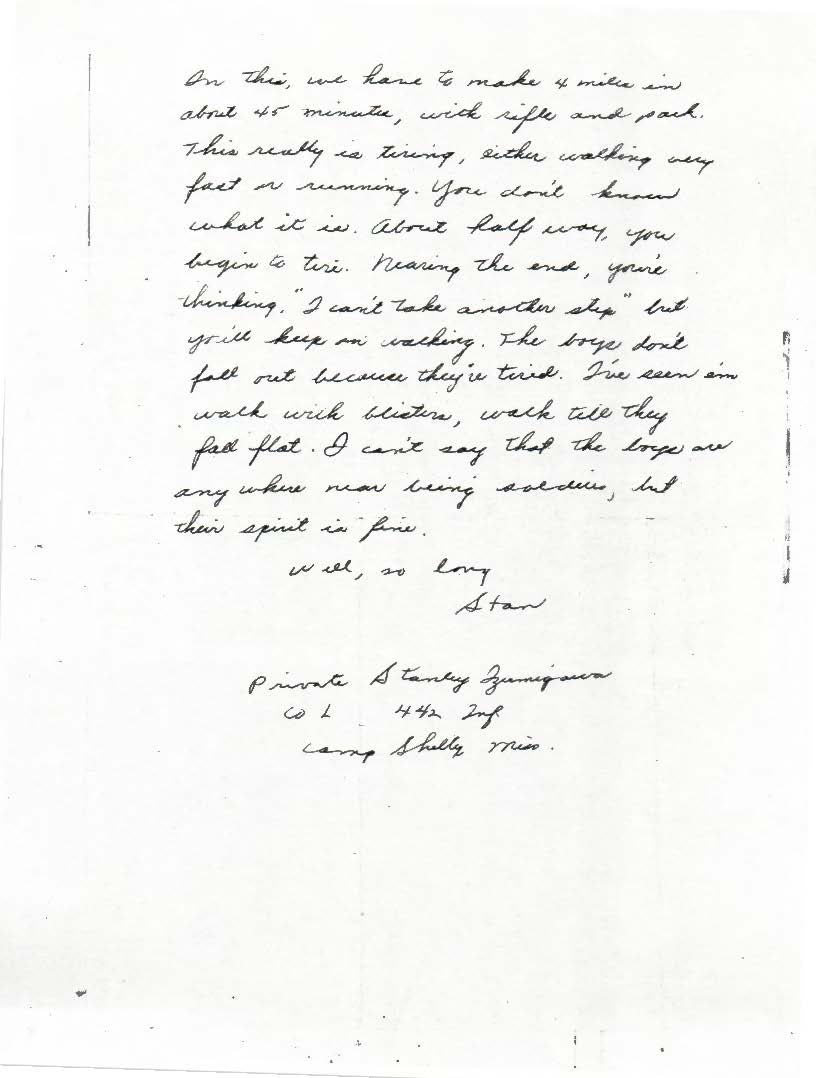 In this, we have to make 4 miles in
about 45 minutes, with rifle and pack.
This really is tiring, either walking very
fast or running. You don't know
what it is. About half way, you
begin to tire. Nearing the end, you're
thinking, "I can't take another step" but
you'll keep on walking. The boys don't
fall out because they're tired. I've seen 'em
walk with blisters, walk till they
fall flat. I can't say that the boys are
any where near being soldiers, but
their spirit is fine.
Well, so long
Stan
Private Stanley Izumigawa
Co L 442 Inf
Camp Shelly Miss.